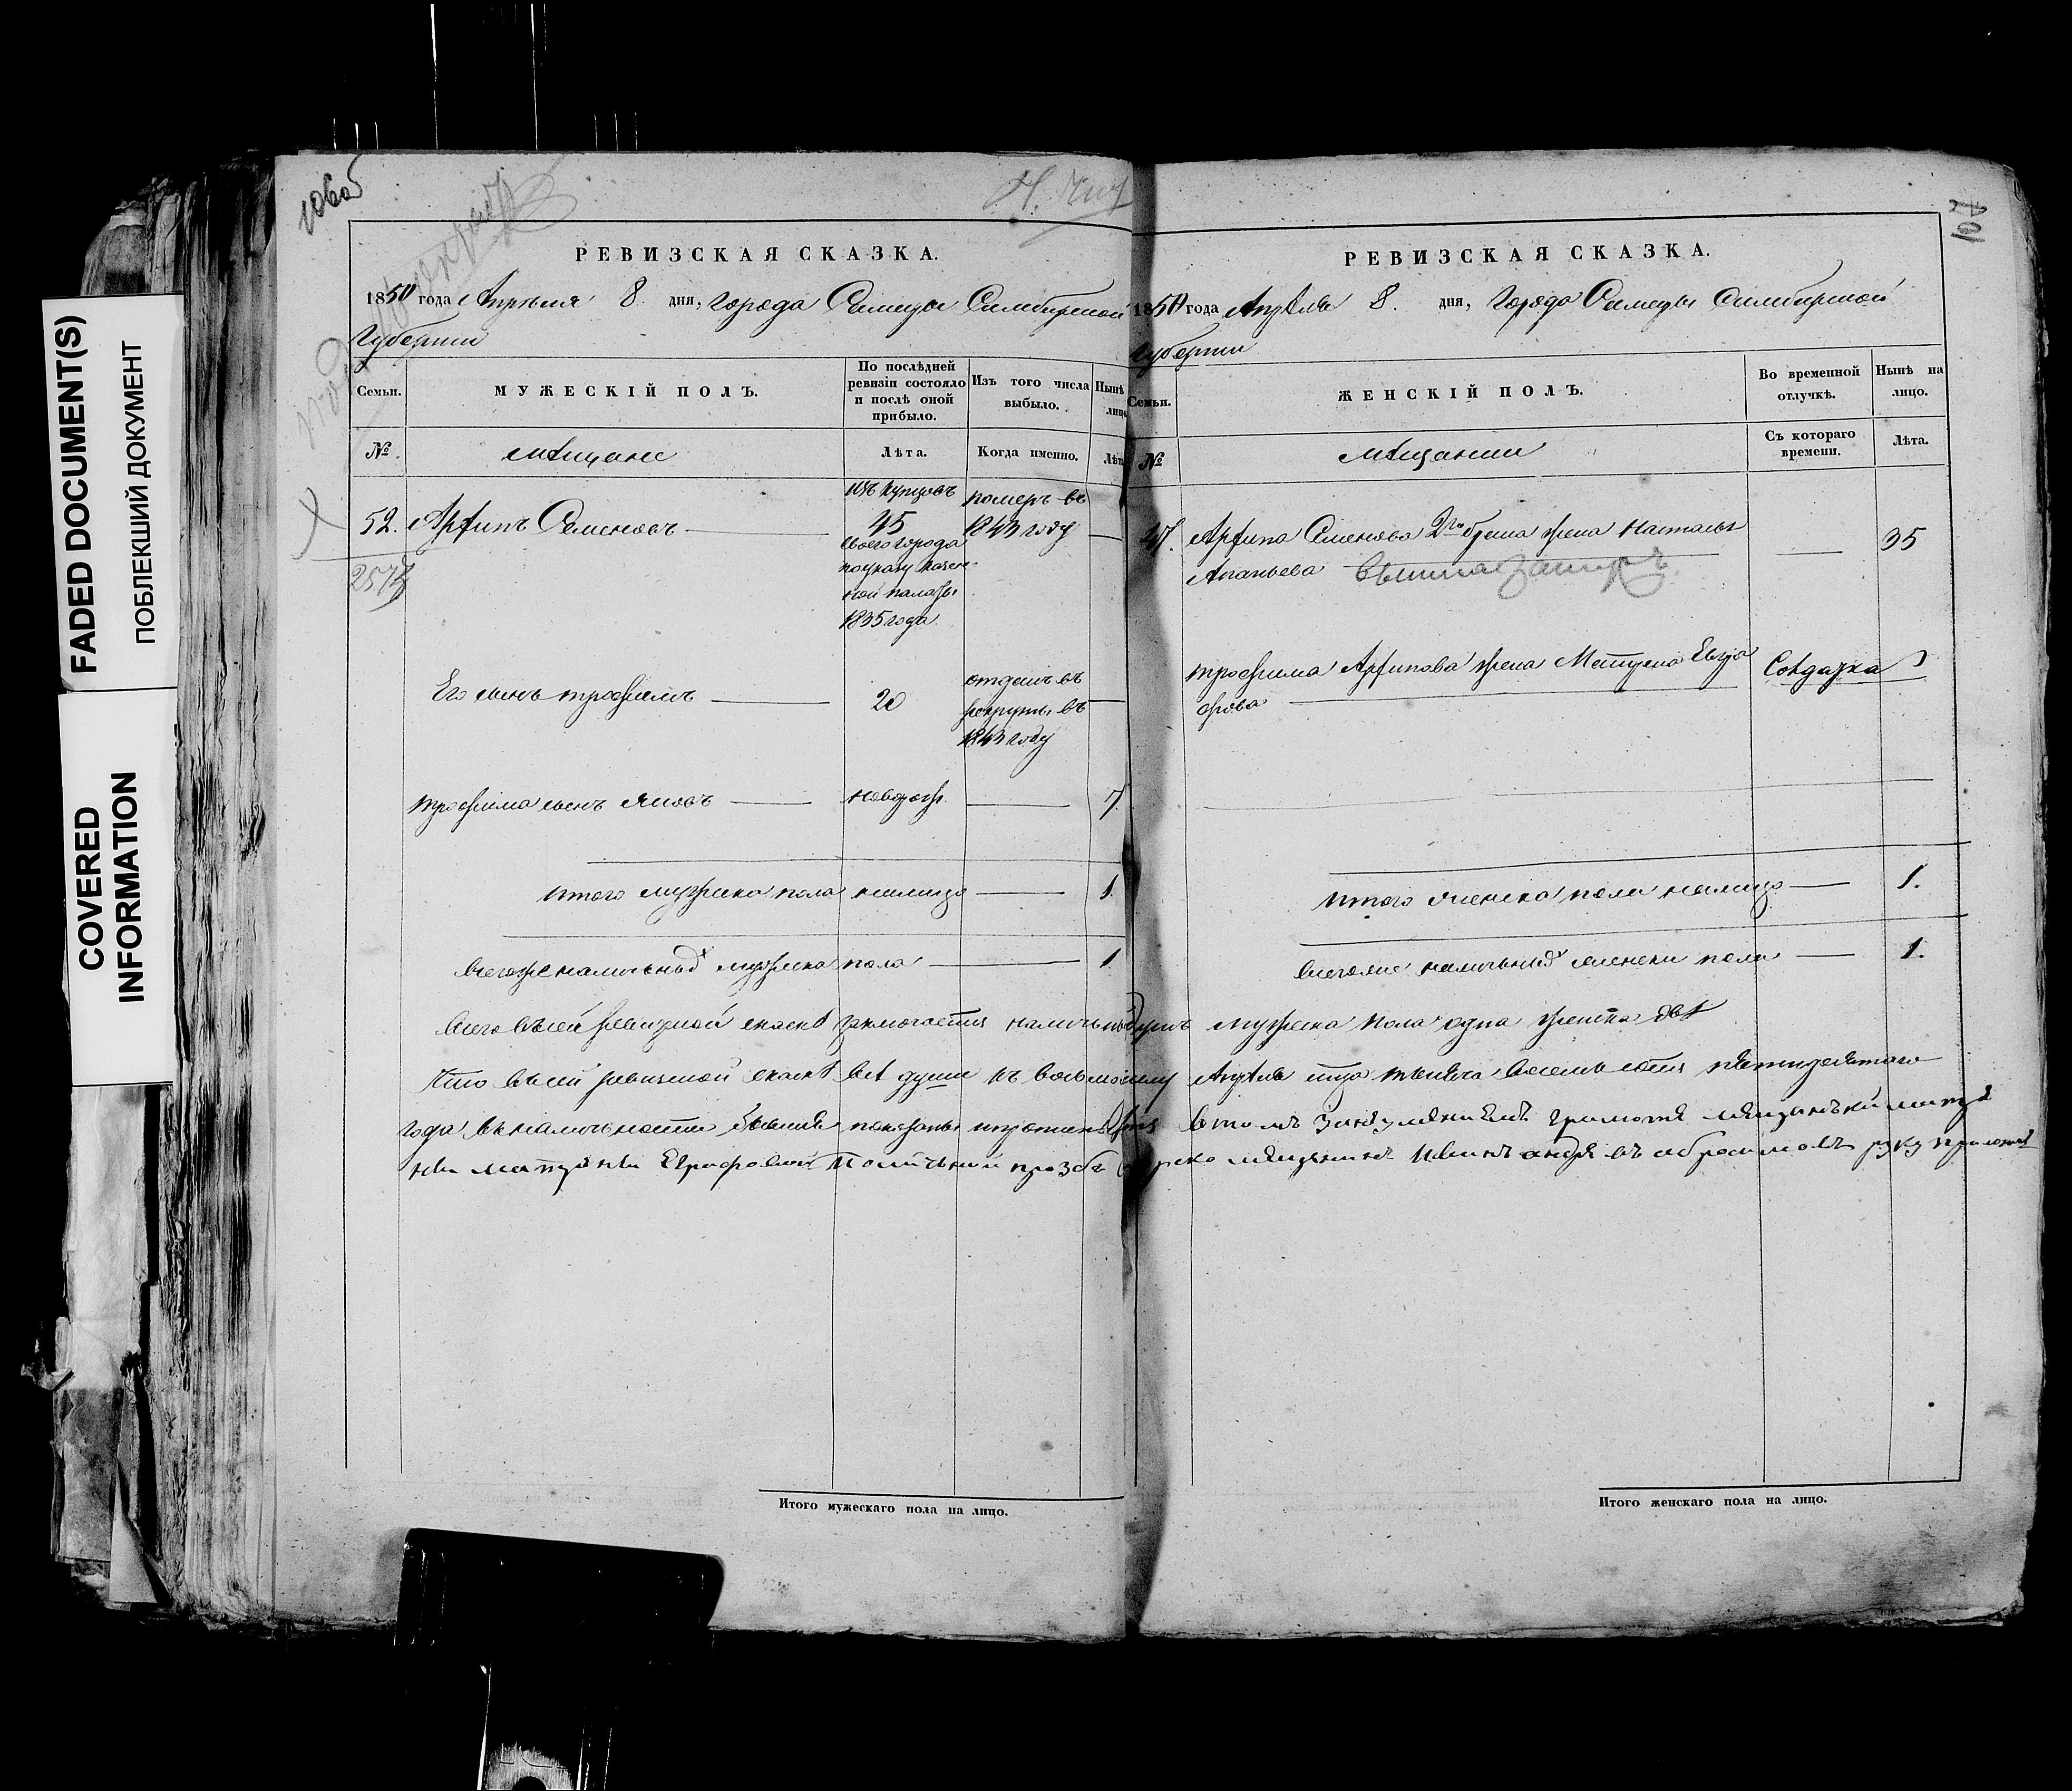 FADED DOCUMENT(S)
ПОБЛЕКШИЙ ДОКУМЕНТ
COVERED
INFORMATION
106об
107
РЕВИЗСКАЯ СКАЗКА.
1850 года Апреля 8. дня, города Самары Симбирской
Губернии
Семьи.
МУЖЕСКІЙ ПОЛЪ.
По послѣдней
ревизіи состояло
и послѣ оной
прибыло.
Изъ того числа
выбыло.
Нынѣ
лицо
№.
мѣщане
Лѣта.
Когда именно.
Лѣта
изъ купцовъ
померъ въ
52. Архипъ Семеновъ 45 1843 году
своего города
по указу Казен
ной палаты
1835 года
Его сынъ трофимъ 20 отданъ въ
рекруты въ
1843 году
трофима сынъ Яковъ новорож 7.
итого мужеска пола налицо 1.
всегоже наличныхъ мужеска пола 1
РЕВИЗСКАЯ СКАЗКА.
1850 года Апрѣля 8. дня, Города Самары Симбирской
Губернии
Семьи.
ЖЕНСКІЙ ПОЛЪ.
Во временной
отлучкѣ.
Нынѣ на
лицо.
№
мѣщанки
Съ котораго
времени.
Лѣта.
Архипа Семенова 2го брака жена Наталья 35
Ананьева
трофима Архипова жена Матрена Евгра Солдатка
фова
итого женска пола налицо 1.
всегоже наличныхъ женска пола 1.
всего въ сей ревизской сказкѣ заключается наличныхъ душъ мужеска пола одна женска двѣ
Что въ сей ревизской сказкѣ все души къ восьмому Апрѣля тысяча восемь сотъ пятидесятаго
года въ наличности бывшие показаны
Евграфовой
руку приложилъ
Итого мужескаго пола на лицо.
Итого женскаго пола на лицо.